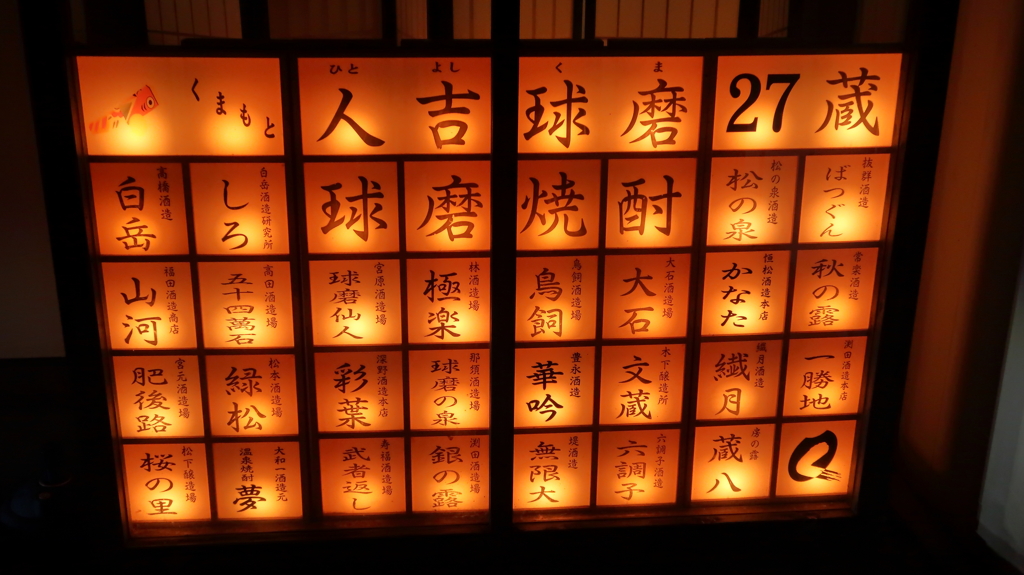 くまもと
ひと よし
人 吉
く ま
球 磨
27 蔵
高橋酒造
白岳
白岳酒造研究所
しろ
球 磨 焼 酎
松の泉酒造
松の泉
抜群酒造
ばつぐん
福田酒造商店
山河
高田酒造場
五十四萬石
宮原酒造場
球磨仙人
林酒造場
極楽
鳥飼酒造場
鳥飼
大石酒造場
大石
恒松酒造本店
かなた
常楽酒造
秋の露
宮元酒造場
肥後路
松本酒造場
緑松
深野酒造本店
彩葉
那須酒造場
球磨の泉
豊永酒造
華吟
木下醸造所
文蔵
繊月酒造
繊月
渕田酒造本店
一勝地
松下醸造場
桜の里
大和一酒造元
温泉焼酎
夢
寿福酒造場
武者返し
渕田酒造場
銀の露
堤酒造
無限大
六調子酒造
六調子
房の露
蔵八